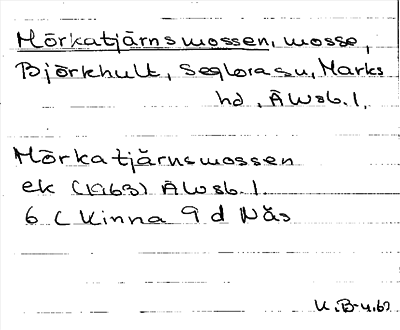 Mörkatjärnsmossen, mosse,
Björkhult, Seglora sn, Marks
hd, Äwsb.l.
Mörkatjärnsmossen
ek (1963) Äwsb.l.
6 C Kinna 9 d Näs
K.B-n,63